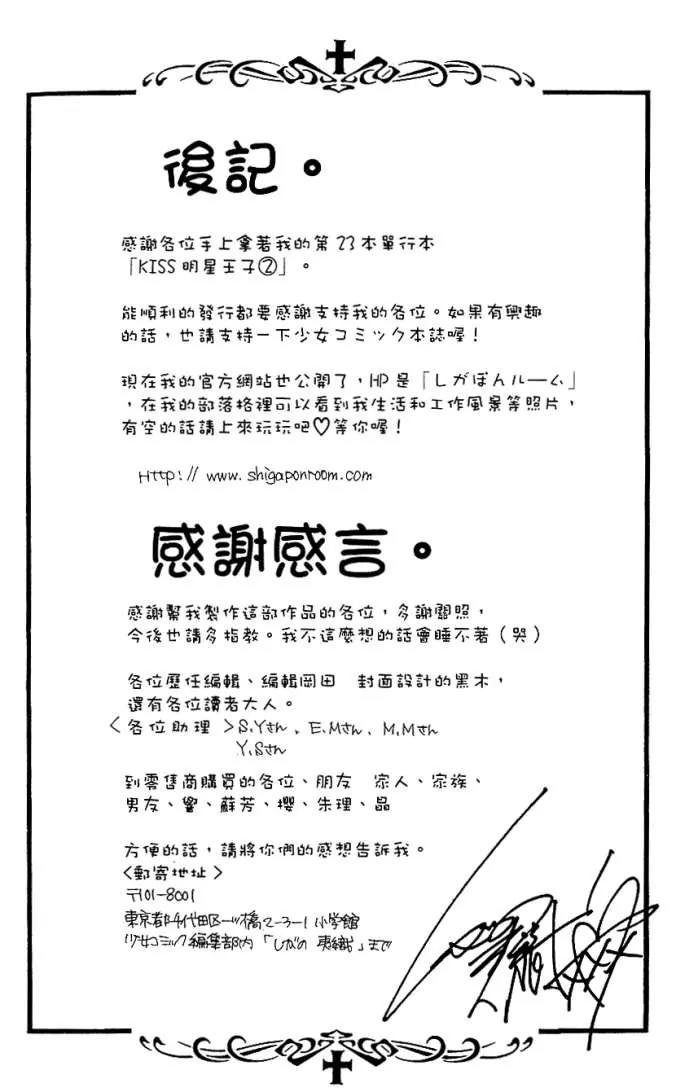 後記。
感謝各位手上拿著我的第23本單行本
「KISS明星王子②」。
能順利的發行都要感謝支持我的各位。如果有興趣
的話,也請支持一下少女コミック本誌喔!
現在我的官方網站也公開了,HP是「しがぽんルーム」
,在我的部落格裡可以看到我生活和工作風景等照片,
有空的話請上來玩玩吧♡等你喔!
Http://www.shigaponroom.com
感謝感言。
感謝幫我製作這部作品的各位,多謝關照,
今後也請多指教。我不這麼想的話會睡不著(哭)
各位歷任編輯、編輯岡田 封面設計的黑木,
還有各位讀者大人。
〈各位助理〉S.Yさん、E.Mさん、M.Mさん
Y.Sさん
到零售商購買的各位、朋友 家人、家族、
男友、響、蘇芳、櫻、朱理、晶
方便的話,請將你們的感想告訴我。
〈郵寄地址〉
〒101-8001
東京都千代田区一ツ橋2-3-1 小学館
少女コミック編集部内「しがの 夷織」まで